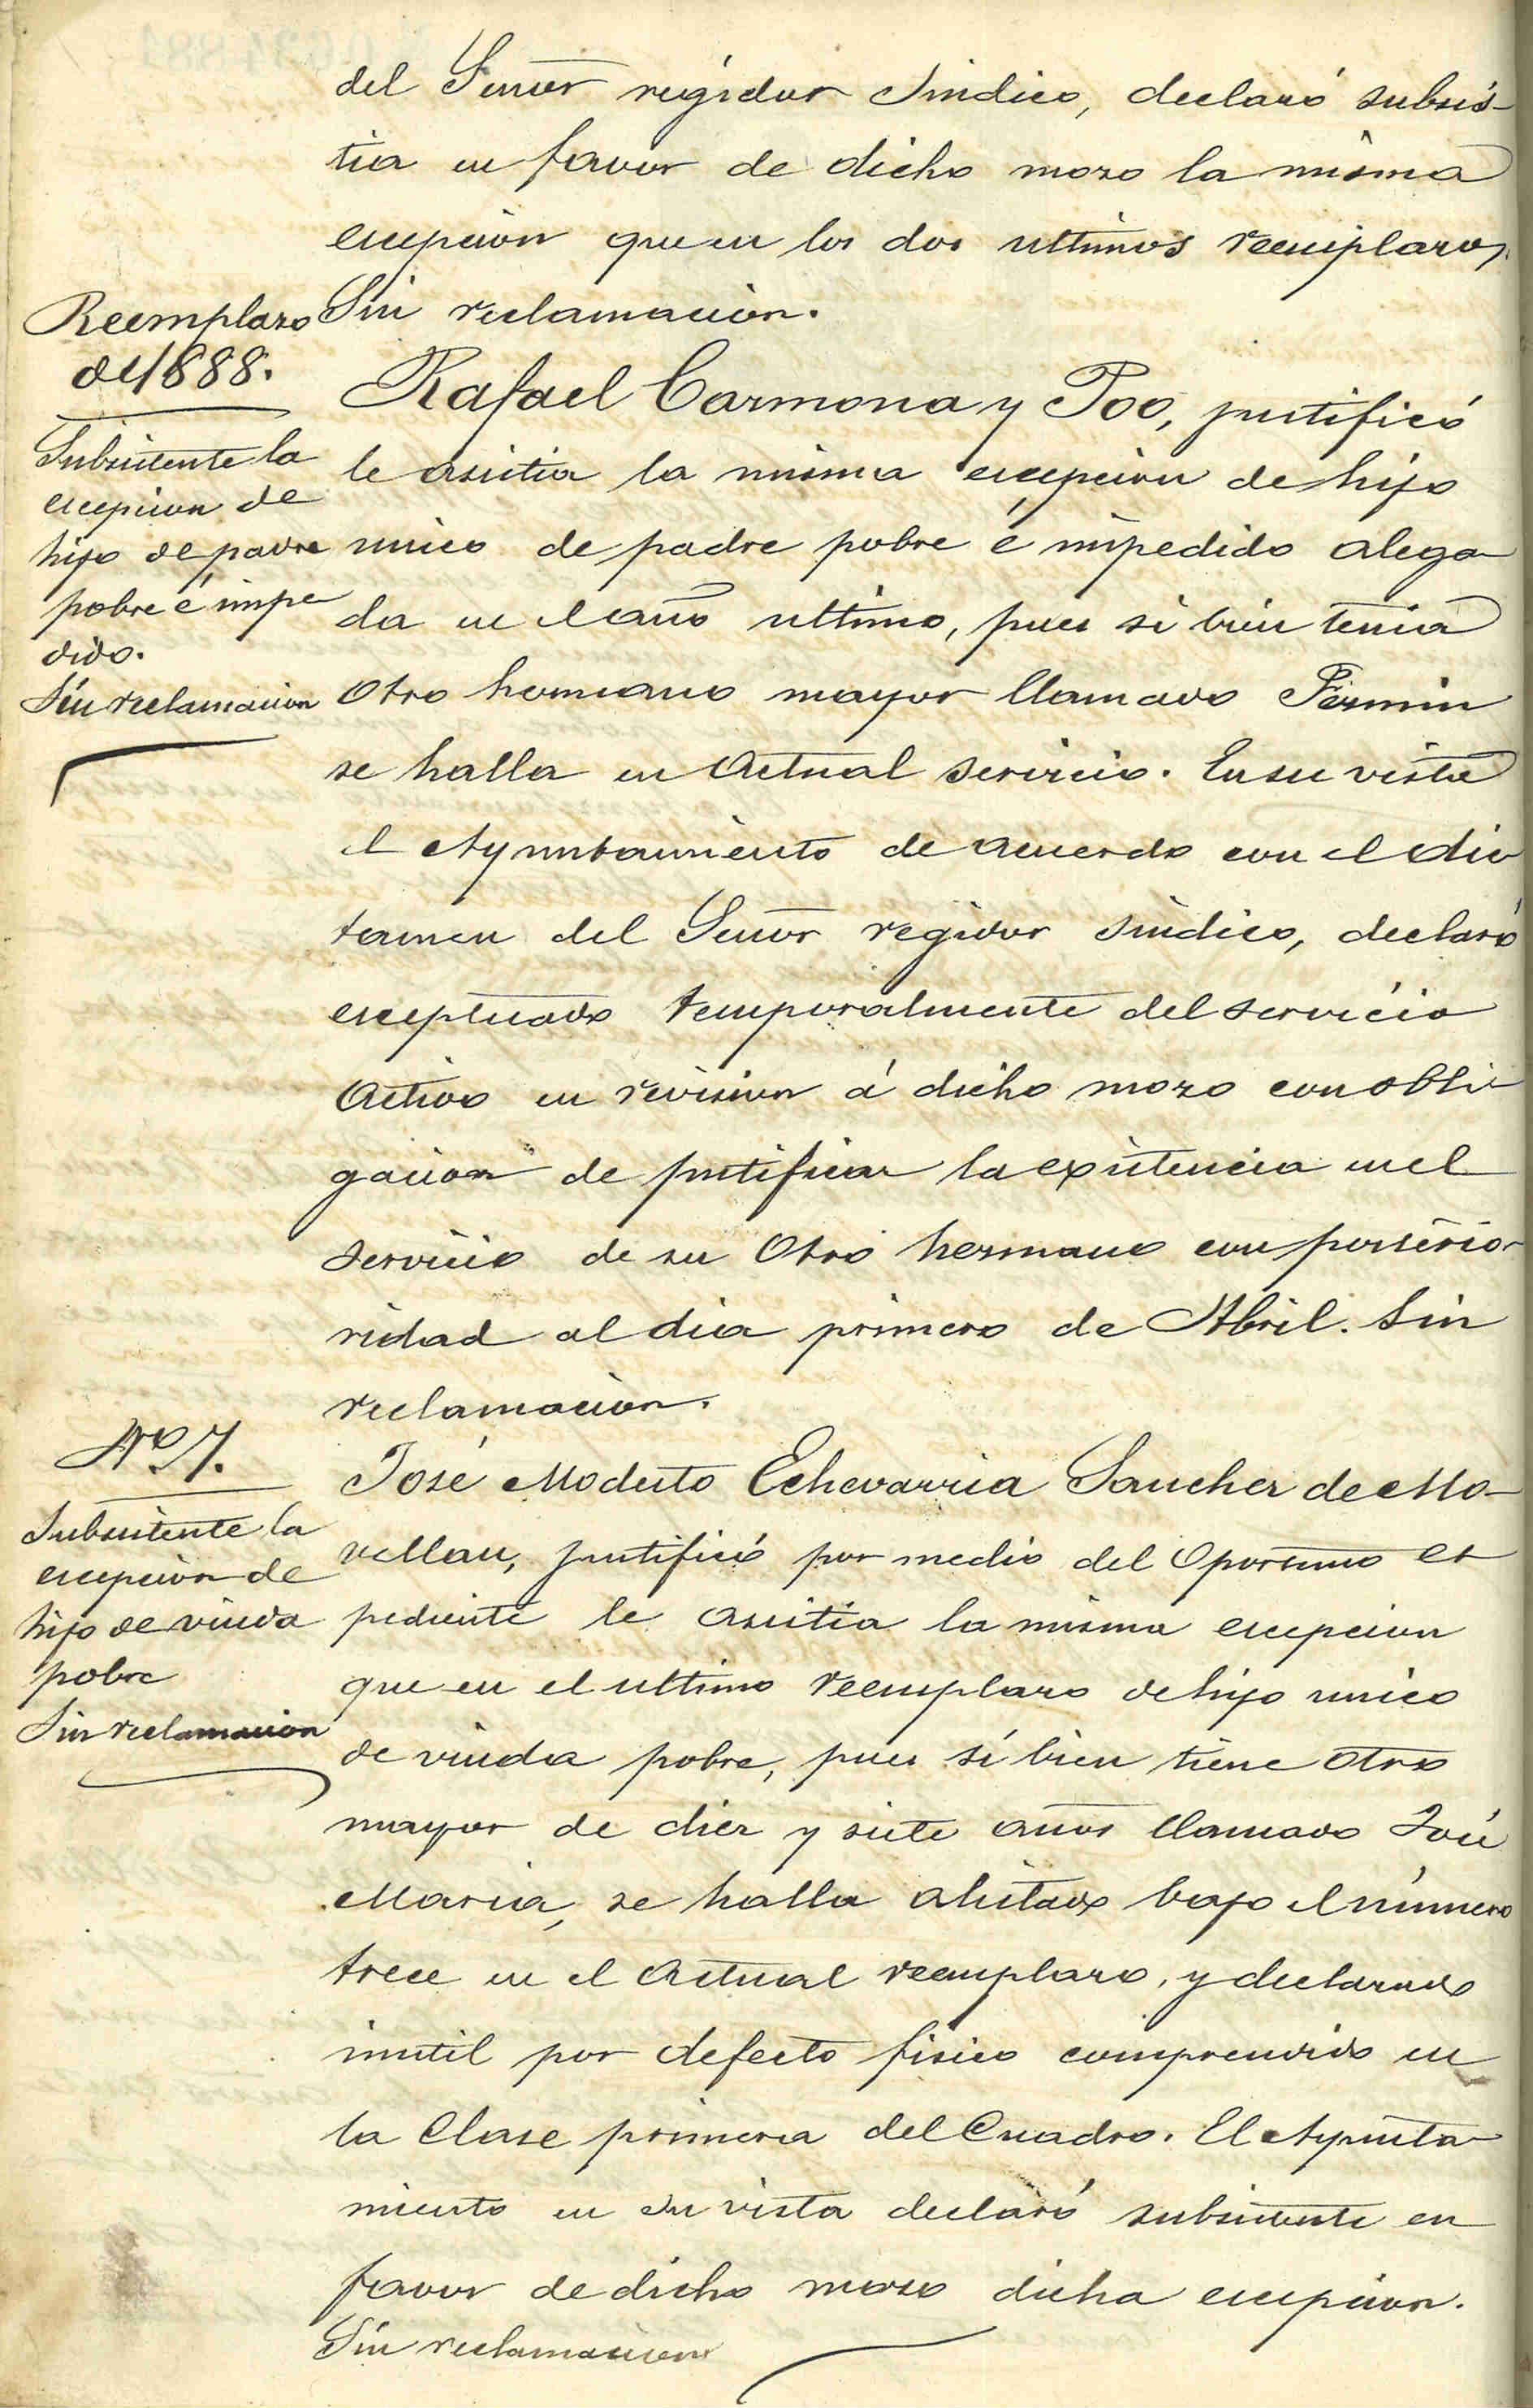 del Señor regidor Sindico, declaró subsis-
tia en favor de dicho mozo la misma
escepcion que en los dos ultimos reemplazos,
Sin reclamacion.
Reemplazo
de 1888.
Subsistente la
escepcion de
hijo de padre
pobre é impe
dido.
Sin reclamacion
Rafael Carmona y Poo, justificó
le asistia la misma escepcion de hijo
unico de padre pobre é impedido alega
da en el año ultimo, pues si bien tenia
otro hermano mayor llamado Fermin
se halla en actual servicio. En su vista
el Ayuntamiento de acuerdo con el dic
tamen del Señor regidor Sindico, declaró
esceptuado temporalmente del servicio
activo en revision á dicho mozo con obli
gacion de justificar la existencia en el
servicio de su otro hermano con posterio-
ridad al dia primero de Abril. Sin
reclamacion.
Nº 7.
Subsistente la
escepcion de
hijo de viuda
pobre
Sin reclamacion
José Modesto Echevarria Sanchez de Mo-
vellan, justificó por medio del oportuno es
pediente le asistia la misma escepcion
que en el ultimo reemplazo de hijo unico
de viuda pobre, pues si bien tiene otro
mayor de diez y siete años llamado José
Maria, se halla alistado bajo el número
trece en el actual reemplazo, y declarado
inutil por defecto fisico comprendido en
la Clase primera del Cuadro. El Ayunta
miento en su vista declaró subsistente en
favor de dicho mozo dicha escepcion.
Sin reclamacion